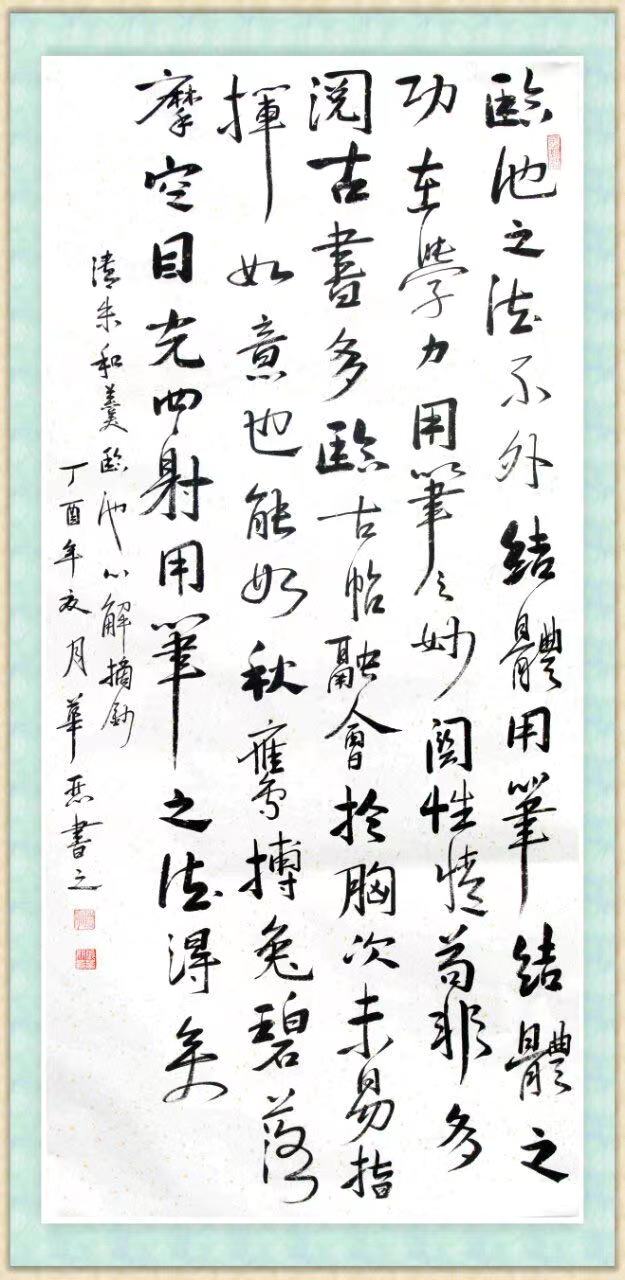 臨池之法不外結體用筆結體之
功在學力用筆之妙關性情苟非多
閱古書多臨古帖融會於胸次未易指
揮如意也能如秋鷹搏兔碧落
摩空目光四射用筆之法得矣
清朱和羹臨池心解摘鈔
丁酉年友月華恶書之